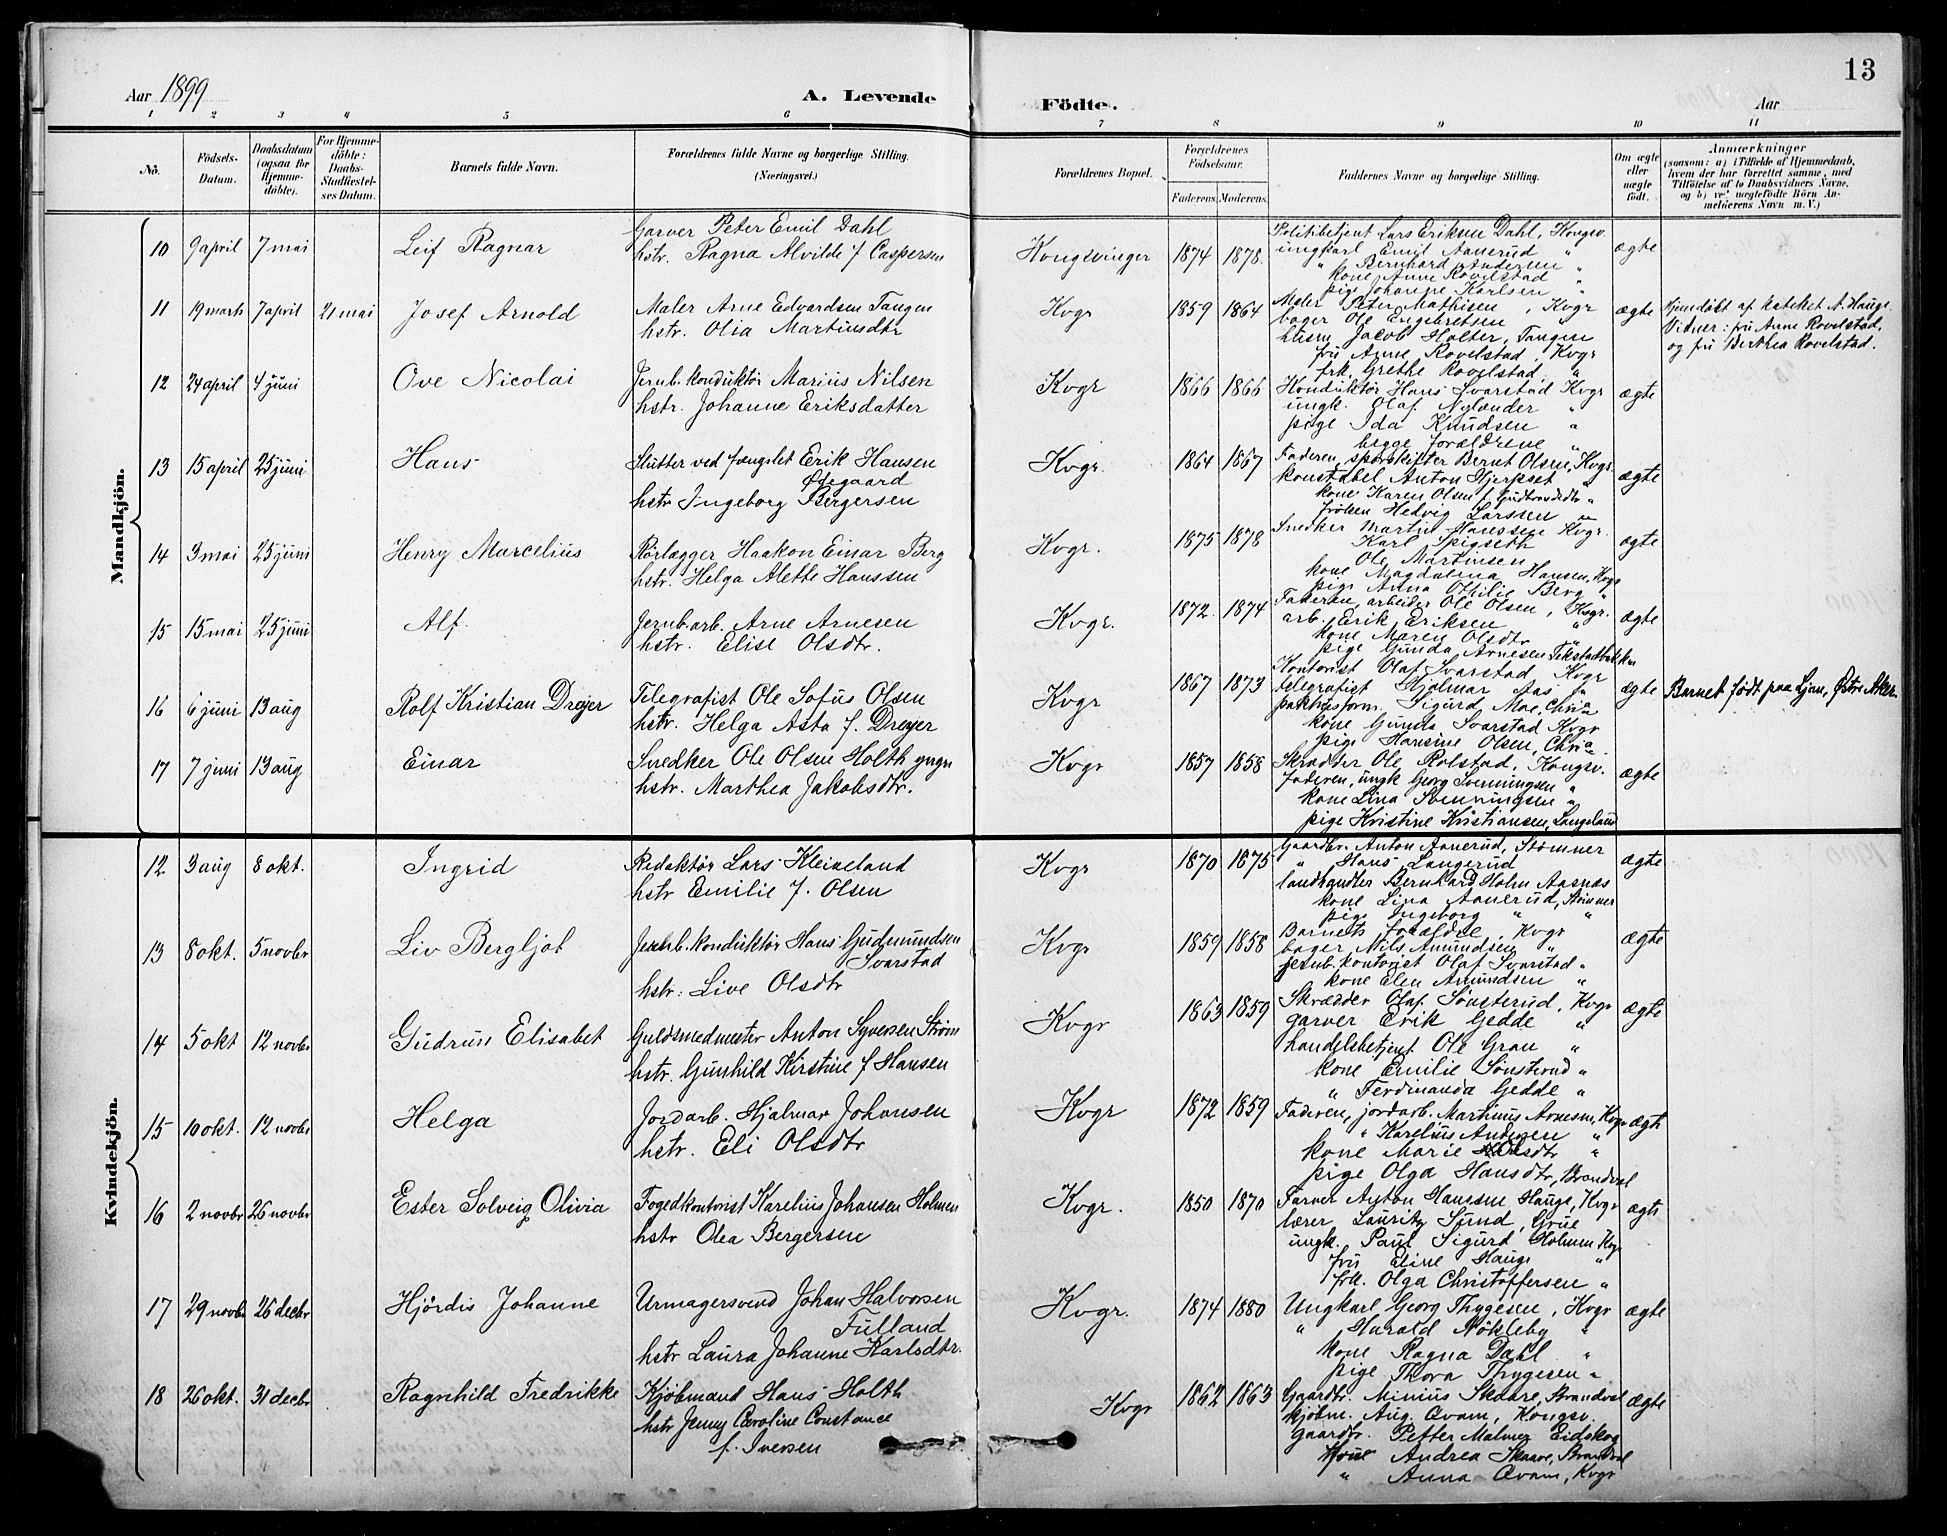 Aar 1899
A. Levende
Födte.
Aar
13
1 2 3 4 5 6 7 8 9 10 11
No.
Födsels-Datum.
Daabsdatum (ogsaa for Hjemmedöbte).
For Hjemmedöbte: Daabs-Stadfæstelses Datum.
Barnets fulde Navn.
Forældrenes fulde Navne og borgerlige Stilling. (Næringsvei.)
Forældrenes Bopæl.
Forældrenes Födselsaar.
Faderens. Moderens.
Faddernes Navne og borgerlige Stilling.
Om ægte eller uægte födt.
Anmærkninger
(saasom: a) i Tilfælde af Hjemmedaab, hvem der har forrettet samme, med Tilföielse af to Daabsvidners Navne, og b) ved uægtefödte Börn Anmelderens Navn m. V.)
Mandkjön.
10 9 april 7 mai Leif Ragnar
Garver Peter Emil Dahl
hstr. Ragna Alvilde f Caspersen
Kongsvinger 1874 1878.
Politibetjent Lars Eriksen Dahl, Kongsv.
ungkarl Emil Aanerud "
" Bernhard Andersen "
kone Anne Rovelstad "
pige Johanne Karlsen "
ægte
11 19 marts 7 april 21 mai Josef Arnold
Maler Arne Edvardsen Tangen
hstr. Olia Martinsdtr
Kvgr 1859 1864
Maler Peter Mathisen, Kvgr
bager Ole Engebretsen "
husm. Jacob Holter, Tangen
fru Anne Rovelstad, Kvgr
frk. Grethe Rovelstad "
ægte
Hjemdøbt af kateket A. Hauge.
Vidner: fru Anne Rovelstad,
og fru Berthea Rovelstad.
12 24 april 4 juni Ove Nicolai
Jernb. konduktör Marius Nilsen
hstr. Johanne Eriksdatter
Kvgr 1866 1866
Konduktör Hans Svarstad Kvgr
ungk. Olaf Nylænder "
pige Ida Knudsen "
begge forældrene "
ægte
13 15 april 25 juni Hans
Slutter ved fængslet Erik Hansen
Ødegaard
hstr Ingeborg Bergersen
Kvgr. 1864 1867
Faderen, sporskifter Bernt Olsen, Kvgr.
konstabel Anton Hjerpset "
kone Karen Olsen f. Gudbrandsdtr "
fröken Hedvig Larssen "
ægte
14 3 mai 25 juni Henry Marcelius
Rörlægger Haakon Einar Berg
hstr. Helga Alette Hanssen
Kvgr. 1875 1878
Snedker Martin Hanssen Kvgr.
Karl Spigseth
Ole Martinsen
kone Magdalena Hansen, Kvgr
pige Anna Othilie Berg "
ægte
15 15 mai 25 juni Alf.
Jernb. arb. Arne Arnesen
hstr. Elise Olsdtr.
Kvgr. 1872. 1874
Faderen, arbeider Ole Olsen, Kvgr.
arb. Erik Eriksen "
kone Maren Olsdtr "
pige Gunda Arnesen
ægte
16 6 juni 13 aug Rolf Kristian Dreyer
Telegrafist Ole Sofus Olsen
hstr. Helga Asta f. Dreyer
Kvgr 1867 1873
Kontorist Olaf Svarstad Kvgr
telegrafist Hjalmar Aas "
pakhusform. Sigurd Moe, Chria
kone Gunda Svarstad Kvgr
pige Hansine Olsen, Chria.
ægte
Barnet født paa Ljan, Østre Aker.
17 7 juni 13 aug Einar
Snedker Ole Olsen Holth yngr
hstr. Marthea Jakobsdtr.
Kvgr 1857 1858
Skrædder Ole Rolstad, Kongsv.
faderen, ungk Georg Svenningsen "
kone Lina Svenningsen "
pige Kristine Kristiansen, Langeland
ægte
Kvindekjön.
12. 3 aug 8 okt. Ingrid
Redaktör Lars Kleiveland
hstr Emilie f. Olsen
Kvgr 1870 1875
Gaardbr. Anton Aanerud, Strømner
" Hans Langerud
landhandler Bernhard Holm Aasnæs
kone Lina Aanerud, Strømner
pige Ingeborg " "
ægte
13 8 okt. 5 novbr Liv Bergljot
Jernb. konduktör Hans Gudmundsen
Svarstad
hstr: Live Olsdtr
Kvgr 1859 1858
Barnets forældre, Kvgr
bager Nils Amundsen "
jernb. kontorist Olaf Svarstad "
kone Elen Amundsen "
ægte
14 5 okt 12 novbr Gudrun Elisabet
Guldsmedmester Anton Syversen Strøm
hstr. Gunhild Kirstine f Hansen
Kvgr 1863 1859
Skrædder Olaf Sønsterud, Kvgr
garver Erik Gedde "
handelsbetjent Ole Grau "
kone Emilie Sønsterud "
" Ferdinanda Gedde "
ægte
15 10 okt. 12 novbr Helga
Jordarb. Hjalmar Johansen
hstr. Eli Olsdtr
Kvgr 1872 1859
Faderen, jordarb. Martinus Arnesen, Kvgr
" Karelius Andersen "
kone Marie Olsdtr "
pige Olga Hansdtr, Brandval
ægte
16 2 novbr 26 novbr Ester Solveig Olivia
Fogedkontorist Karelius Johansen Holmen
hstr Olea Bergersen
Kvgr. 1850 1870
Farver Anton Hanssen Hauge, Kvgr
lærer Lauritz Sund, Grue
ungk. Paul Sigurd Holmen Kvgr
fru Eline Hauge "
frk. Olga Christoffersen "
ægte
17 29 novbr 26 decbr Hjördis Johanne
Urmagersvend Johan Halvorsen
Fulland
hstr Laura Johanne Karlsdtr.
Kvgr. 1874 1880
Ungkarl Georg Thygesen, Kvgr
" Harald Nökleby "
kone Ragna Dahl "
pige Thora Thygesen "
ægte
18 26 okt. 31 decbr Ragnhild Fredrikke
Kjøbmand Hans Holth
hstr Jenny Caroline Constance
f. Iversen
Kvgr 1862 1863
Gaardbr. Minius Skaare, Brandval
kjöbm. Aug. Qvam, Kongsv.
gaardbr. Petter Malmer Eidskog
Kone Andrea Skaare, Brandval
" Anna Qvam, Kvgr
ægte